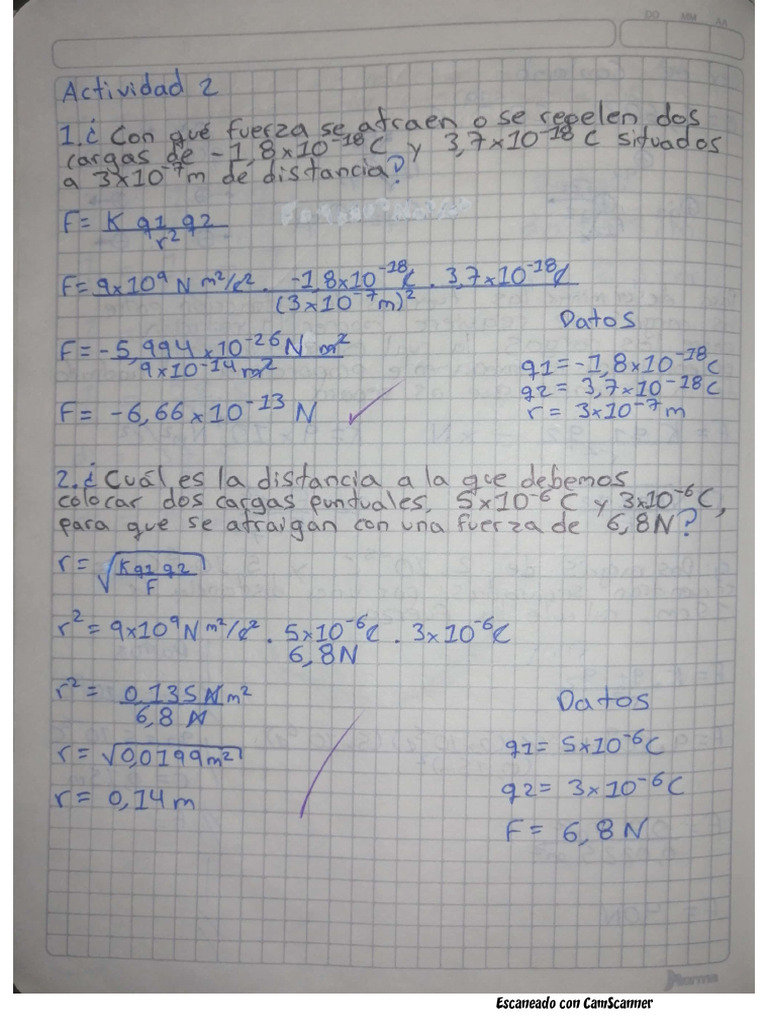 DD MM AA
Actividad 2
1. ¿ Con qué fuerza se atraen o se repelen dos
cargas de -1,8x10⁻¹⁸C y 3,7x10⁻¹⁸ C situados
a 3x10⁻⁷m de distancia?
F= K q1 q2
r²
F= 9x10⁹ N m²/c² . -1,8x10⁻¹⁸c . 3,7x10⁻¹⁸c
(3x10⁻⁷m)²
F= -5,994x10⁻²⁶N m²
9x10⁻¹⁴m²
F= -6,66x10⁻¹³ N
Datos
q1= -1,8x10⁻¹⁸c
q2= 3,7x10⁻¹⁸c
r= 3x10⁻⁷m
2. ¿ Cuál es la distancia a la que debemos
colocar dos cargas puntuales, 5x10⁻⁶ C y 3x10⁻⁶C,
para que se atraigan con una fuerza de 6,8N?
r= √Kq1 q2
F
r²= 9x10⁹N m²/c² . 5x10⁻⁶c . 3x10⁻⁶c
6,8N
r²= 0,135N m²
6,8 N
r= √0,0199m²
r= 0,14m
Datos
q1= 5x10⁻⁶C
q2= 3x10⁻⁶C
F= 6,8N
Norma
Escaneado con CamScanner